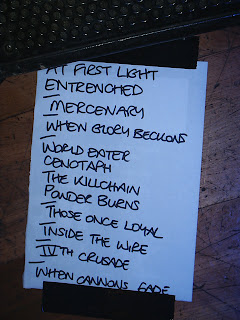 AT FIRST LIGHT
ENTRENCHED
MERCENARY
WHEN GLORY BECKONS
WORLD EATER
CENOTAPH
THE KILLCHAIN
POWDER BURNS
THOSE ONCE LOYAL
INSIDE THE WIRE
IVTH CRUSADE
WHEN CANNONS FADE